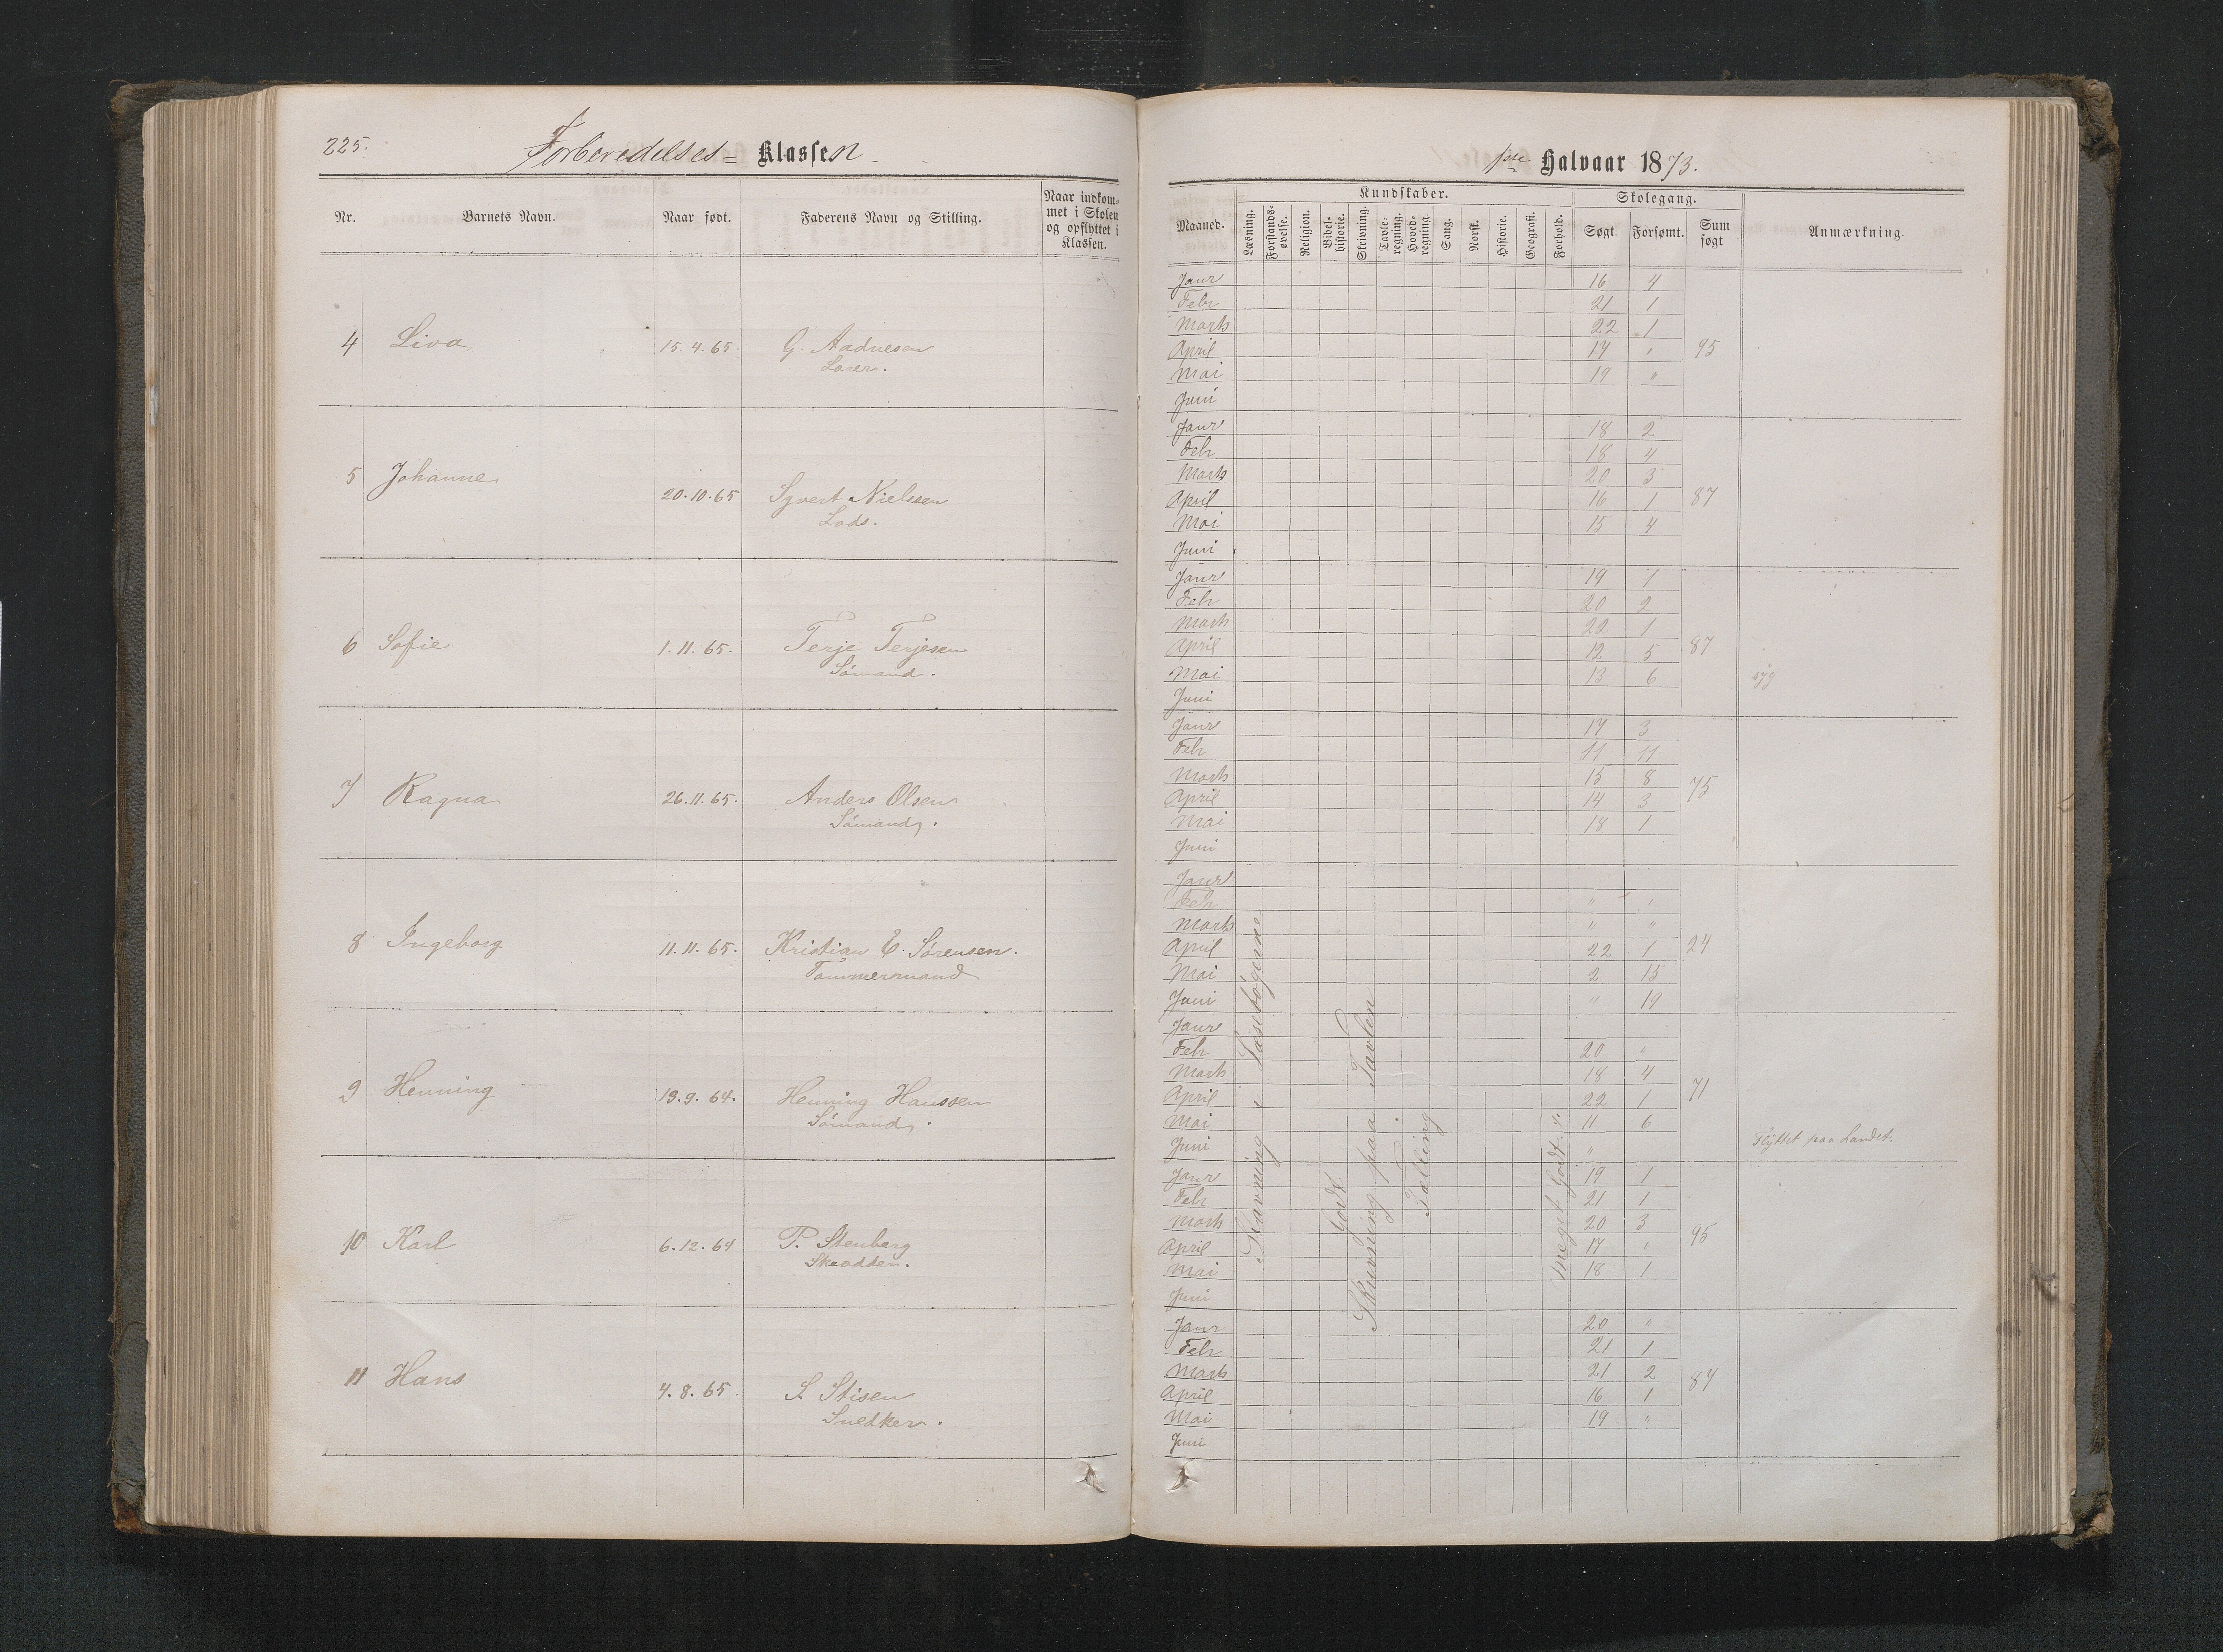 225.
Forberedelses- Klassen
Nr.
Barnets Navn.
Naar født.
Faderens Navn og Stilling.
Naar indkom-
met i Skolen
og opflyttet i
Klassen.
4 Liva 15.4.65. G. Aadnesen
Loser.
5 Johanne 20.10.65 Syvert Nielsen
Lods.
6 Sofie 1.11.65. Terje Terjesen
Sömand.
7 Ragna 26.11.65. Anders Olsen
Sömand.
8 Ingeborg 11.11.65. Kristian E. Sörensen.
Tömmermand
9 Henning 19.9.64. Henning Hanssen
Sömand.
10 Karl 6.12.64 P. Stenberg
Skrædder.
11 Hans 4.8.65. S. Stisen
Snedker.
1ste Halvaar 1873.
Maaned.
Kundskaber.
Læsning.
Forstands-
øvelse.
Religion.
Bibel-
historie.
Skrivning.
Tavle-
regning.
Hoved-
regning.
Sang.
Norsk.
Historie.
Geografi.
Forhold.
Skolegang.
Søgt.
Forsømt.
Sum
søgt
Anmærkning.
Janr 16 4
Febr 21 1
Marts 22 1
April 17 " 95
Mai 19 "
Juni
Janr 18 2
Febr 18 4
Marts 20 3
April 16 1 87
Mai 15 4
Juni
Janr 19 1
Febr 20 2
Marts 22 1
April 12 5 87
Mai 13 6 syg
Juni
Janr 17 3
Febr 11 11
Marts 15 8
April 14 3 75
Mai 18 1
Juni
Janr
Febr " "
Marts " "
April 22 1 24
Mai 2 15
Juni " 19
Janr
Febr 20 "
Marts 18 4
April 22 1 71
Mai 11 6
Juni " Flyttet paa Landet.
Janr 19 1
Febr 21 1
Marts 20 3
April 17 " 95
Mai 18 1
Juni
Janr 20 "
Febr 21 1
Marts 21 2
April 16 1 84
Mai 19 "
Juni
Stavning i Læsebögerne
Godt
Skrivning paa Tavlen
Tælling
meget Godt